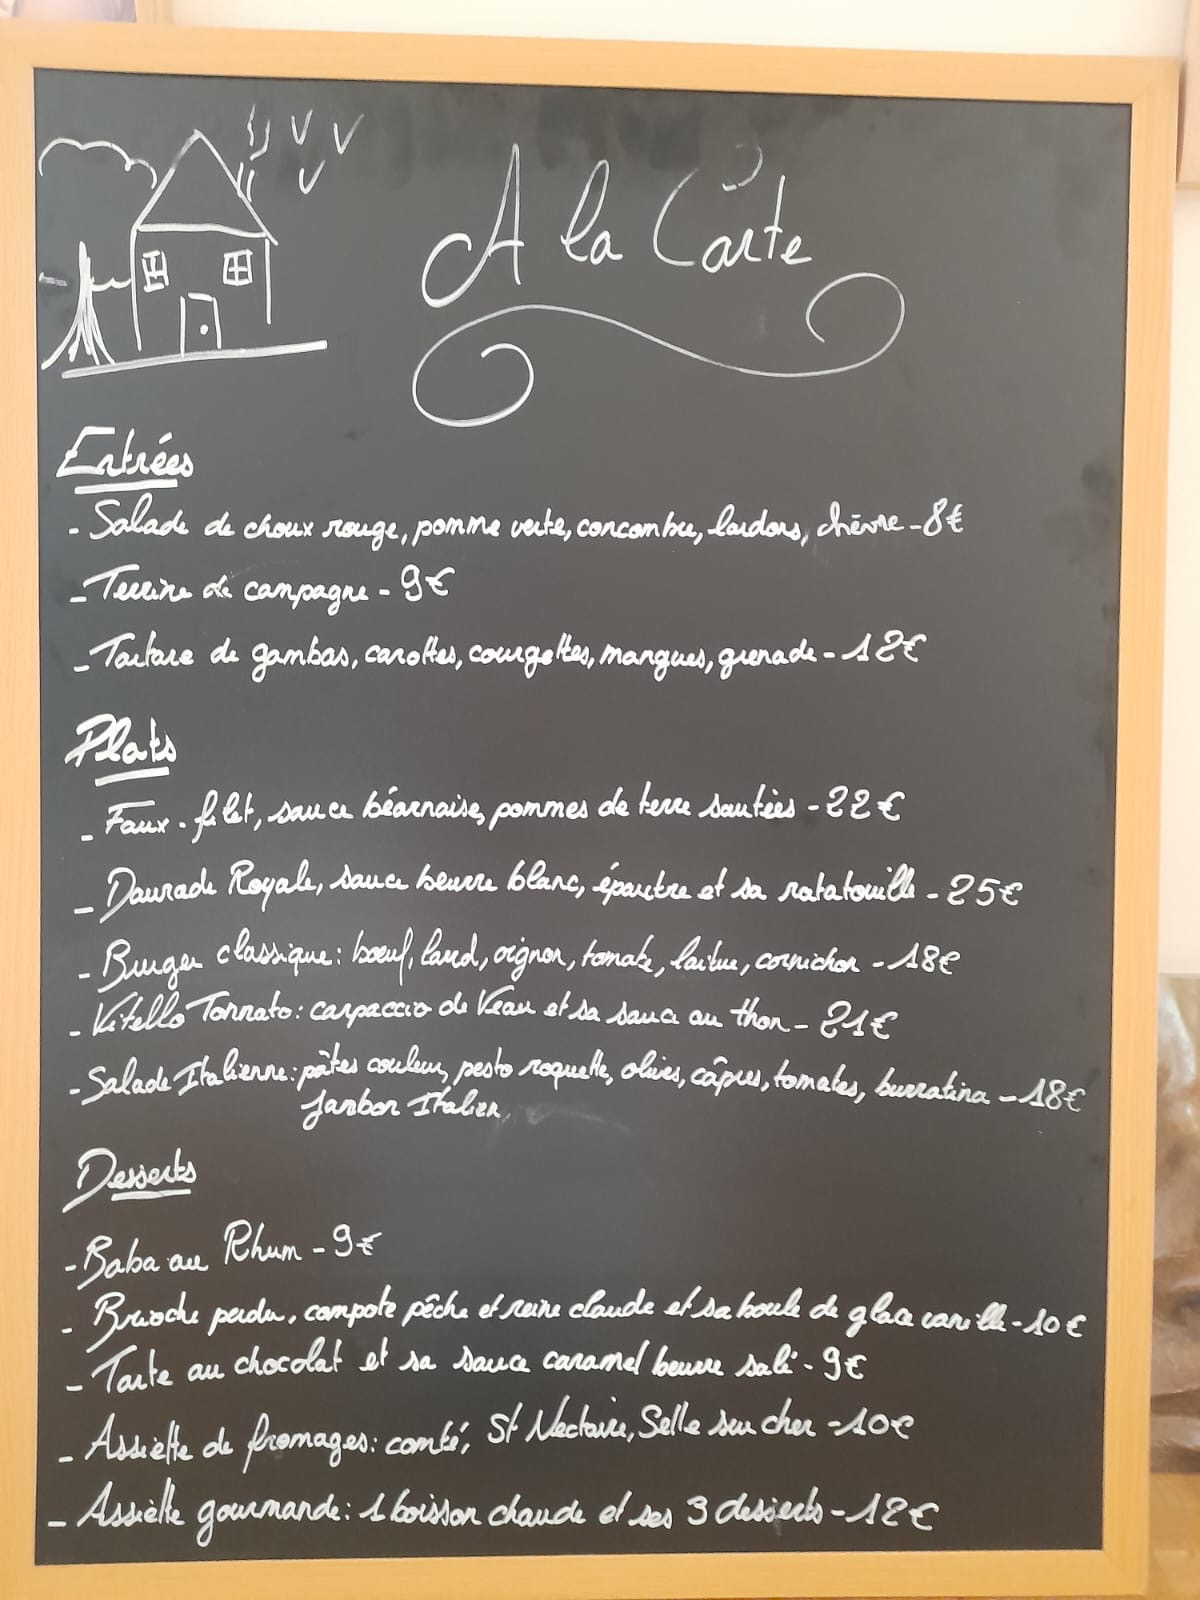 A la Carte
Entrées
- Salade de choux rouge, pomme verte, concombre, lardons, chèvre - 8€
- Terrine de campagne - 9€
- Tartare de gambas, carottes, courgettes, mangues, grenade - 12€
Plats
- Faux-filet, sauce béarnaise, pommes de terre sautées - 22€
- Daurade Royale, sauce beurre blanc, épautre et sa ratatouille - 25€
- Burger classique : boeuf, lard, oignon, tomate, laitue, cornichon - 18€
- Vitello Tonnato : carpaccio de Veau et sa sauce au thon - 21€
- Salade Italienne : pâtes couleur, pesto roquette, olives, câpres, tomates, burratina - 18€
Jambon Italien
Desserts
- Baba au Rhum - 9€
- Brioche perdu, compote pêche et reine claude et sa boule de glace vanille - 10€
- Tarte au chocolat et sa sauce caramel beurre salé - 9€
- Assiette de fromages : comté, St Nectaire, Selle sur cher - 10€
- Assiette gourmande : 1 boisson chaude et ses 3 desserts - 12€